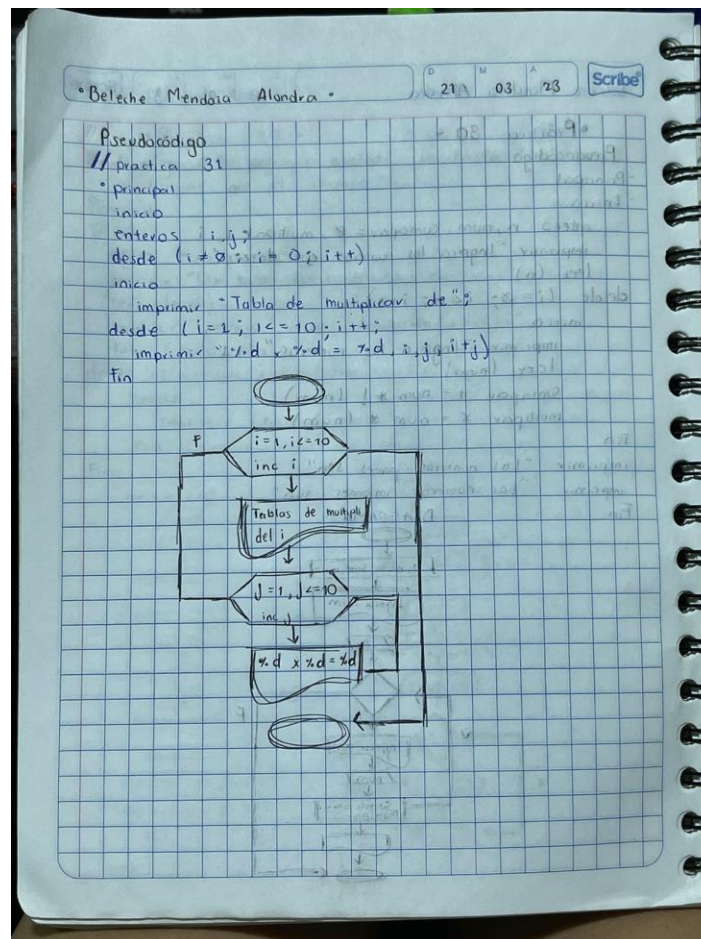 D M A
21 03 23
Scribe
• Beleche Mendoza Alondra •
Pseudocódigo
// practica 31
• principal
inicio
enteros i, j;
desde (i ≠ 0; i = 0; i++)
inicio
imprimir "Tabla de multiplicar de";
desde (i=1; i<=10; i++;
imprimir "%d x %d = %d, i, j, i+j)
Fin
i=1, i<=10
F
inc i
Tablas de multipli
del i
J=1, J<=10
inc J
%d x %d = %d